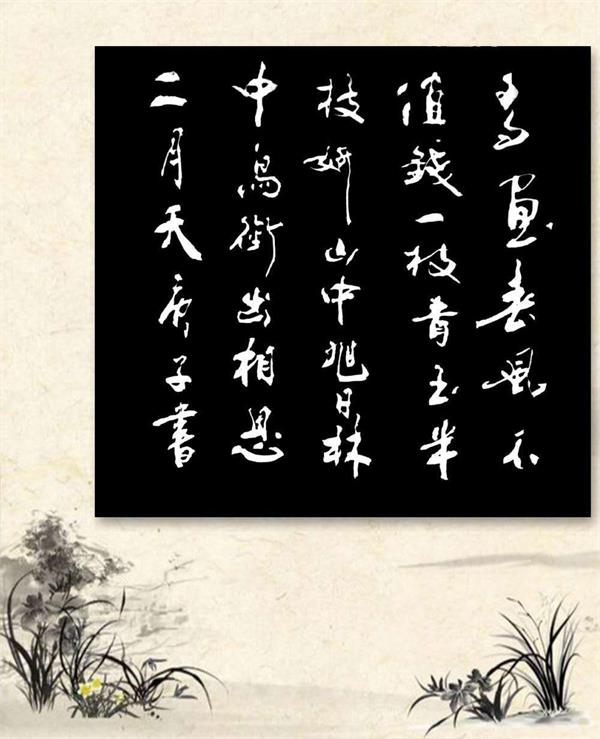 多畫春風不
值錢一枝青玉半
枝妍山中旭日林
中鳥銜出相思
二月天庚子書